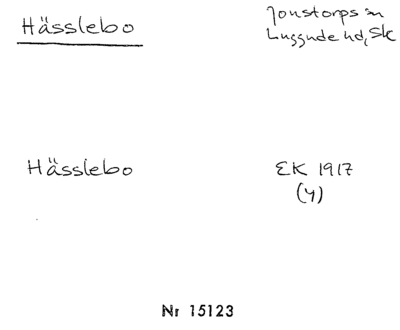 Hässlebo
Jonstorps sn
Luggude hd, Sk
Hässlebo
EK 1917
(4)
Nr 15123